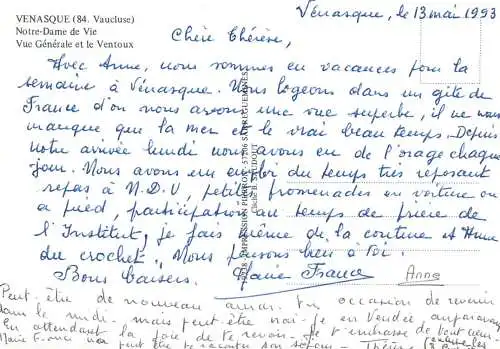 VENASQUE (84. Vaucluse)
Notre-Dame de Vie
Vue Générale et le Ventoux
Vénasque, le 13 mai 1993
Chère Thérèse,
Avec Anne, nous sommes en vacances pour la
semaine à Vénasque. Nous logeons dans un gîte de
France d'où nous avons une vue superbe, il ne nous
manque que la mer et le vrai beau temps. Depuis
notre arrivée lundi nous avons eu de l'orage chaque
jour. Nous avons un emploi du temps très reposant
repas à N.D.V, petites promenades en voiture ou
à pied, participation au temps de prière de
l'Institut, je fais même de la couture et Anne
du crochet. Nous pensons bien à toi.
Bons baisers. Marie France
Anne
Peut-être de nouveau auras-tu occasion de revenir
dans le midi - mais peut-être irai-je en Vendée auparavant
En attendant la joie de te revoir - Je t'embrasse de tout cœur
Marie France peut te raconter son séjour - Thérèse